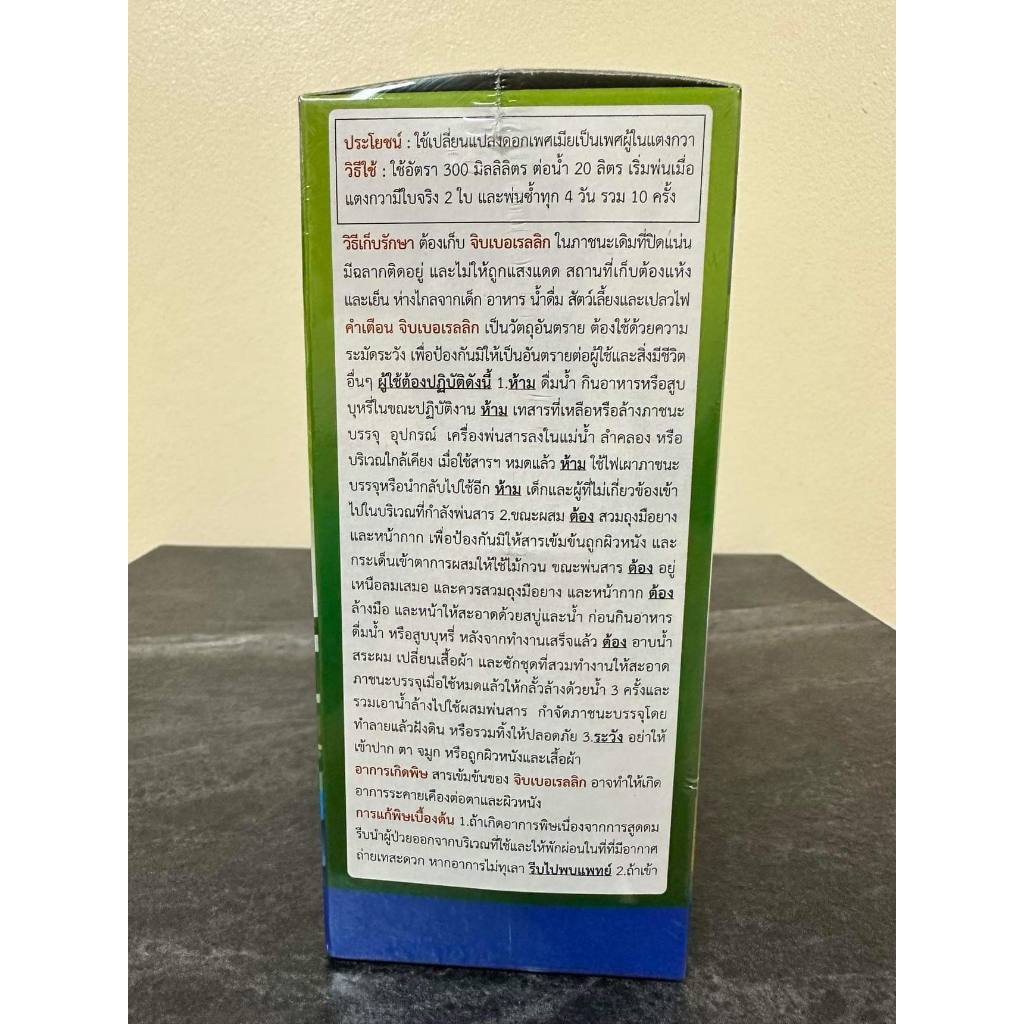 ประโยชน์ : ใช้เปลี่ยนแปลงดอกเพศเมียเป็นเพศผู้ในแตงกวา
วิธีใช้ : ใช้อัตรา 300 มิลลิลิตร ต่อน้ำ 20 ลิตร เริ่มพ่นเมื่อ
แตงกวามีใบจริง 2 ใบ และพ่นซ้ำทุก 4 วัน รวม 10 ครั้ง
วิธีเก็บรักษา ต้องเก็บ จิบเบอเรลลิก ในภาชนะเดิมที่ปิดแน่น
มีฉลากติดอยู่ และไม่ให้ถูกแสงแดด สถานที่เก็บต้องแห้ง
และเย็น ห่างไกลจากเด็ก อาหาร น้ำดื่ม สัตว์เลี้ยงและเปลวไฟ
คำเตือน จิบเบอเรลลิก เป็นวัตถุอันตราย ต้องใช้ด้วยความ
ระมัดระวัง เพื่อป้องกันมิให้เป็นอันตรายต่อผู้ใช้และสิ่งมีชีวิต
อื่นๆ ผู้ใช้ต้องปฏิบัติดังนี้ 1.ห้าม ดื่มน้ำ กินอาหารหรือสูบ
บุหรี่ในขณะปฏิบัติงาน ห้าม เทสารที่เหลือหรือล้างภาชนะ
บรรจุ อุปกรณ์ เครื่องพ่นสารลงในแม่น้ำ ลำคลอง หรือ
บริเวณใกล้เคียง เมื่อใช้สารฯ หมดแล้ว ห้าม ใช้ไฟเผาภาชนะ
บรรจุหรือนำกลับไปใช้อีก ห้าม เด็กและผู้ที่ไม่เกี่ยวข้องเข้า
ไปในบริเวณที่กำลังพ่นสาร 2.ขณะผสม ต้อง สวมถุงมือยาง
และหน้ากาก เพื่อป้องกันมิให้สารเข้มข้นถูกผิวหนัง และ
กระเด็นเข้าตาการผสมให้ใช้ไม้กวน ขณะพ่นสาร ต้อง อยู่
เหนือลมเสมอ และควรสวมถุงมือยาง และหน้ากาก ต้อง
ล้างมือ และหน้าให้สะอาดด้วยสบู่และน้ำ ก่อนกินอาหาร
ดื่มน้ำ หรือสูบบุหรี่ หลังจากทำงานเสร็จแล้ว ต้อง อาบน้ำ
สระผม เปลี่ยนเสื้อผ้า และซักชุดที่สวมทำงานให้สะอาด
ภาชนะบรรจุเมื่อใช้หมดแล้วให้กลั้วล้างด้วยน้ำ 3 ครั้งและ
รวมเอาน้ำล้างไปใช้ผสมพ่นสาร กำจัดภาชนะบรรจุโดย
ทำลายแล้วฝังดิน หรือรวมทิ้งให้ปลอดภัย 3.ระวัง อย่าให้
เข้าปาก ตา จมูก หรือถูกผิวหนังและเสื้อผ้า
อาการเกิดพิษ สารเข้มข้นของ จิบเบอเรลลิก อาจทำให้เกิด
อาการระคายเคืองต่อตาและผิวหนัง
การแก้พิษเบื้องต้น 1.ถ้าเกิดอาการพิษเนื่องจากการสูดดม
รีบนำผู้ป่วยออกจากบริเวณที่ใช้และให้พักผ่อนในที่ที่มีอากาศ
ถ่ายเทสะดวก หากอาการไม่ทุเลา รีบไปพบแพทย์ 2.ถ้าเข้า